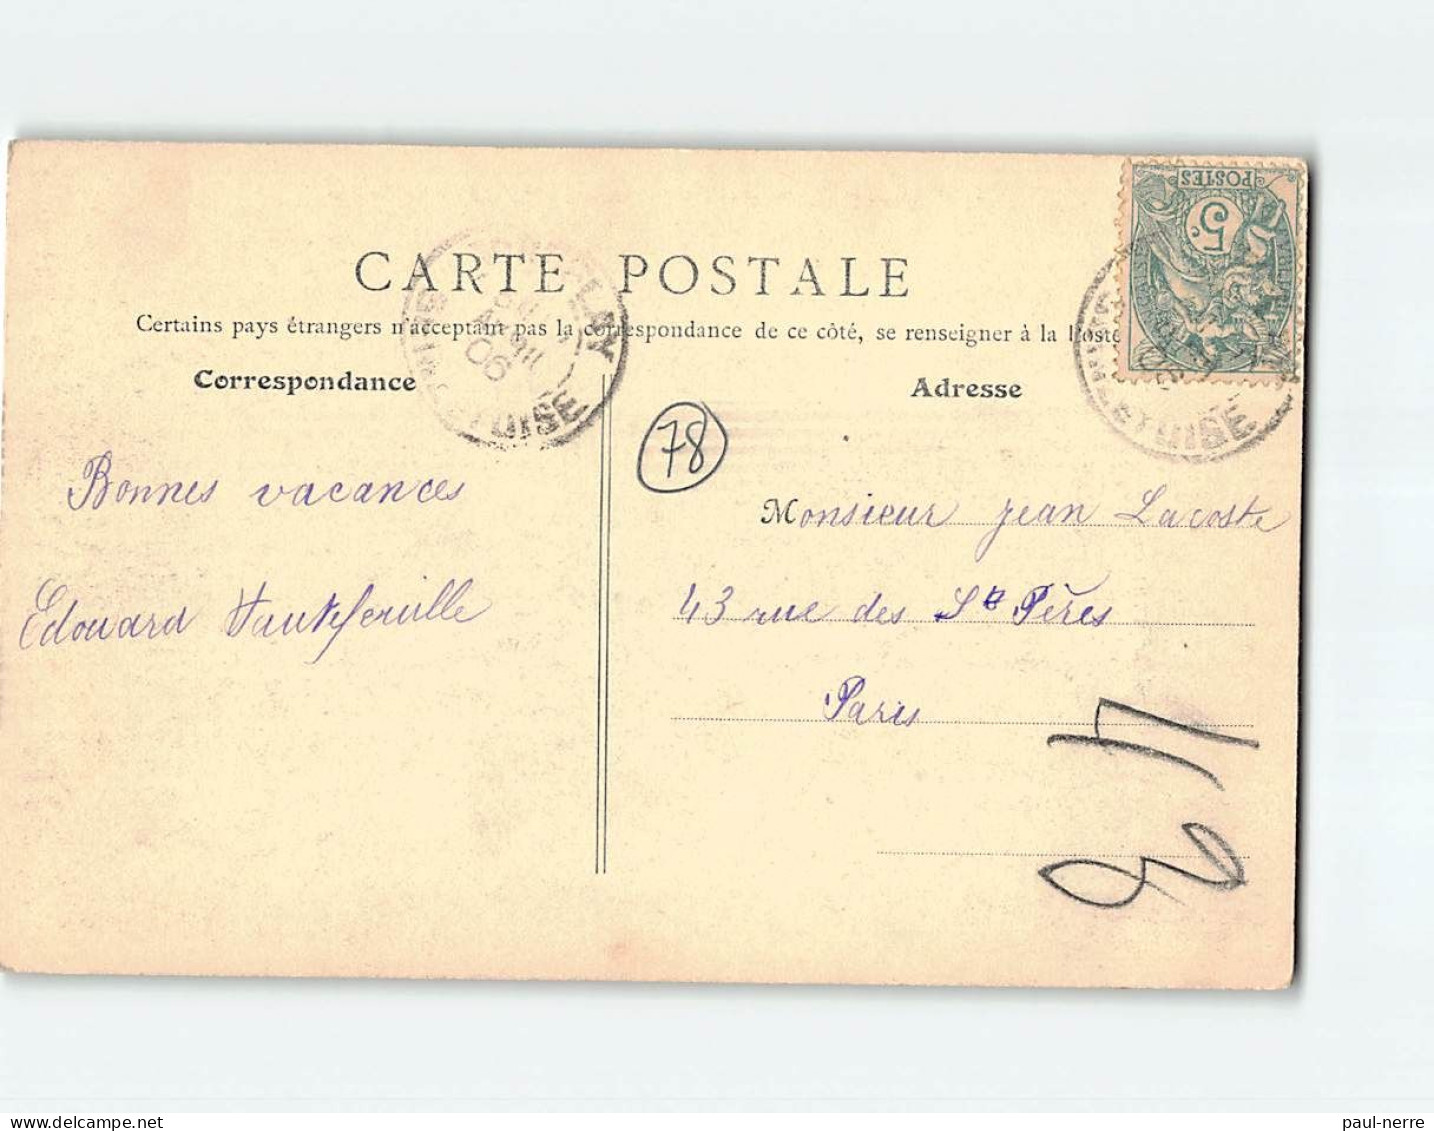 CARTE POSTALE
Certains pays étrangers n'acceptant pas la correspondance de ce côté, se renseigner à la Poste
Correspondance
Adresse
POSTES
5c
06
ET OISE
ET OISE
78
Bonnes vacances
Edouard
Monsieur Jean Lacoste
43 rue des Sts Pères
Paris
paul-nerre